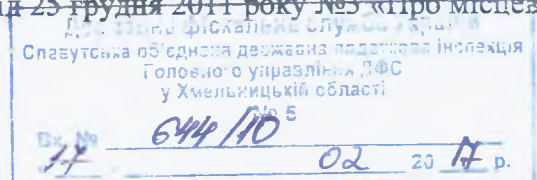 25 грудня 2011 року №3 «Про місцев
Державна фіскальна служба України
Славутська об'єднана державна податкова інспекція
Головного управління ДФС
у Хмельницькій області
№ 5
Вх. № 644/10
17 02 20 17 р.